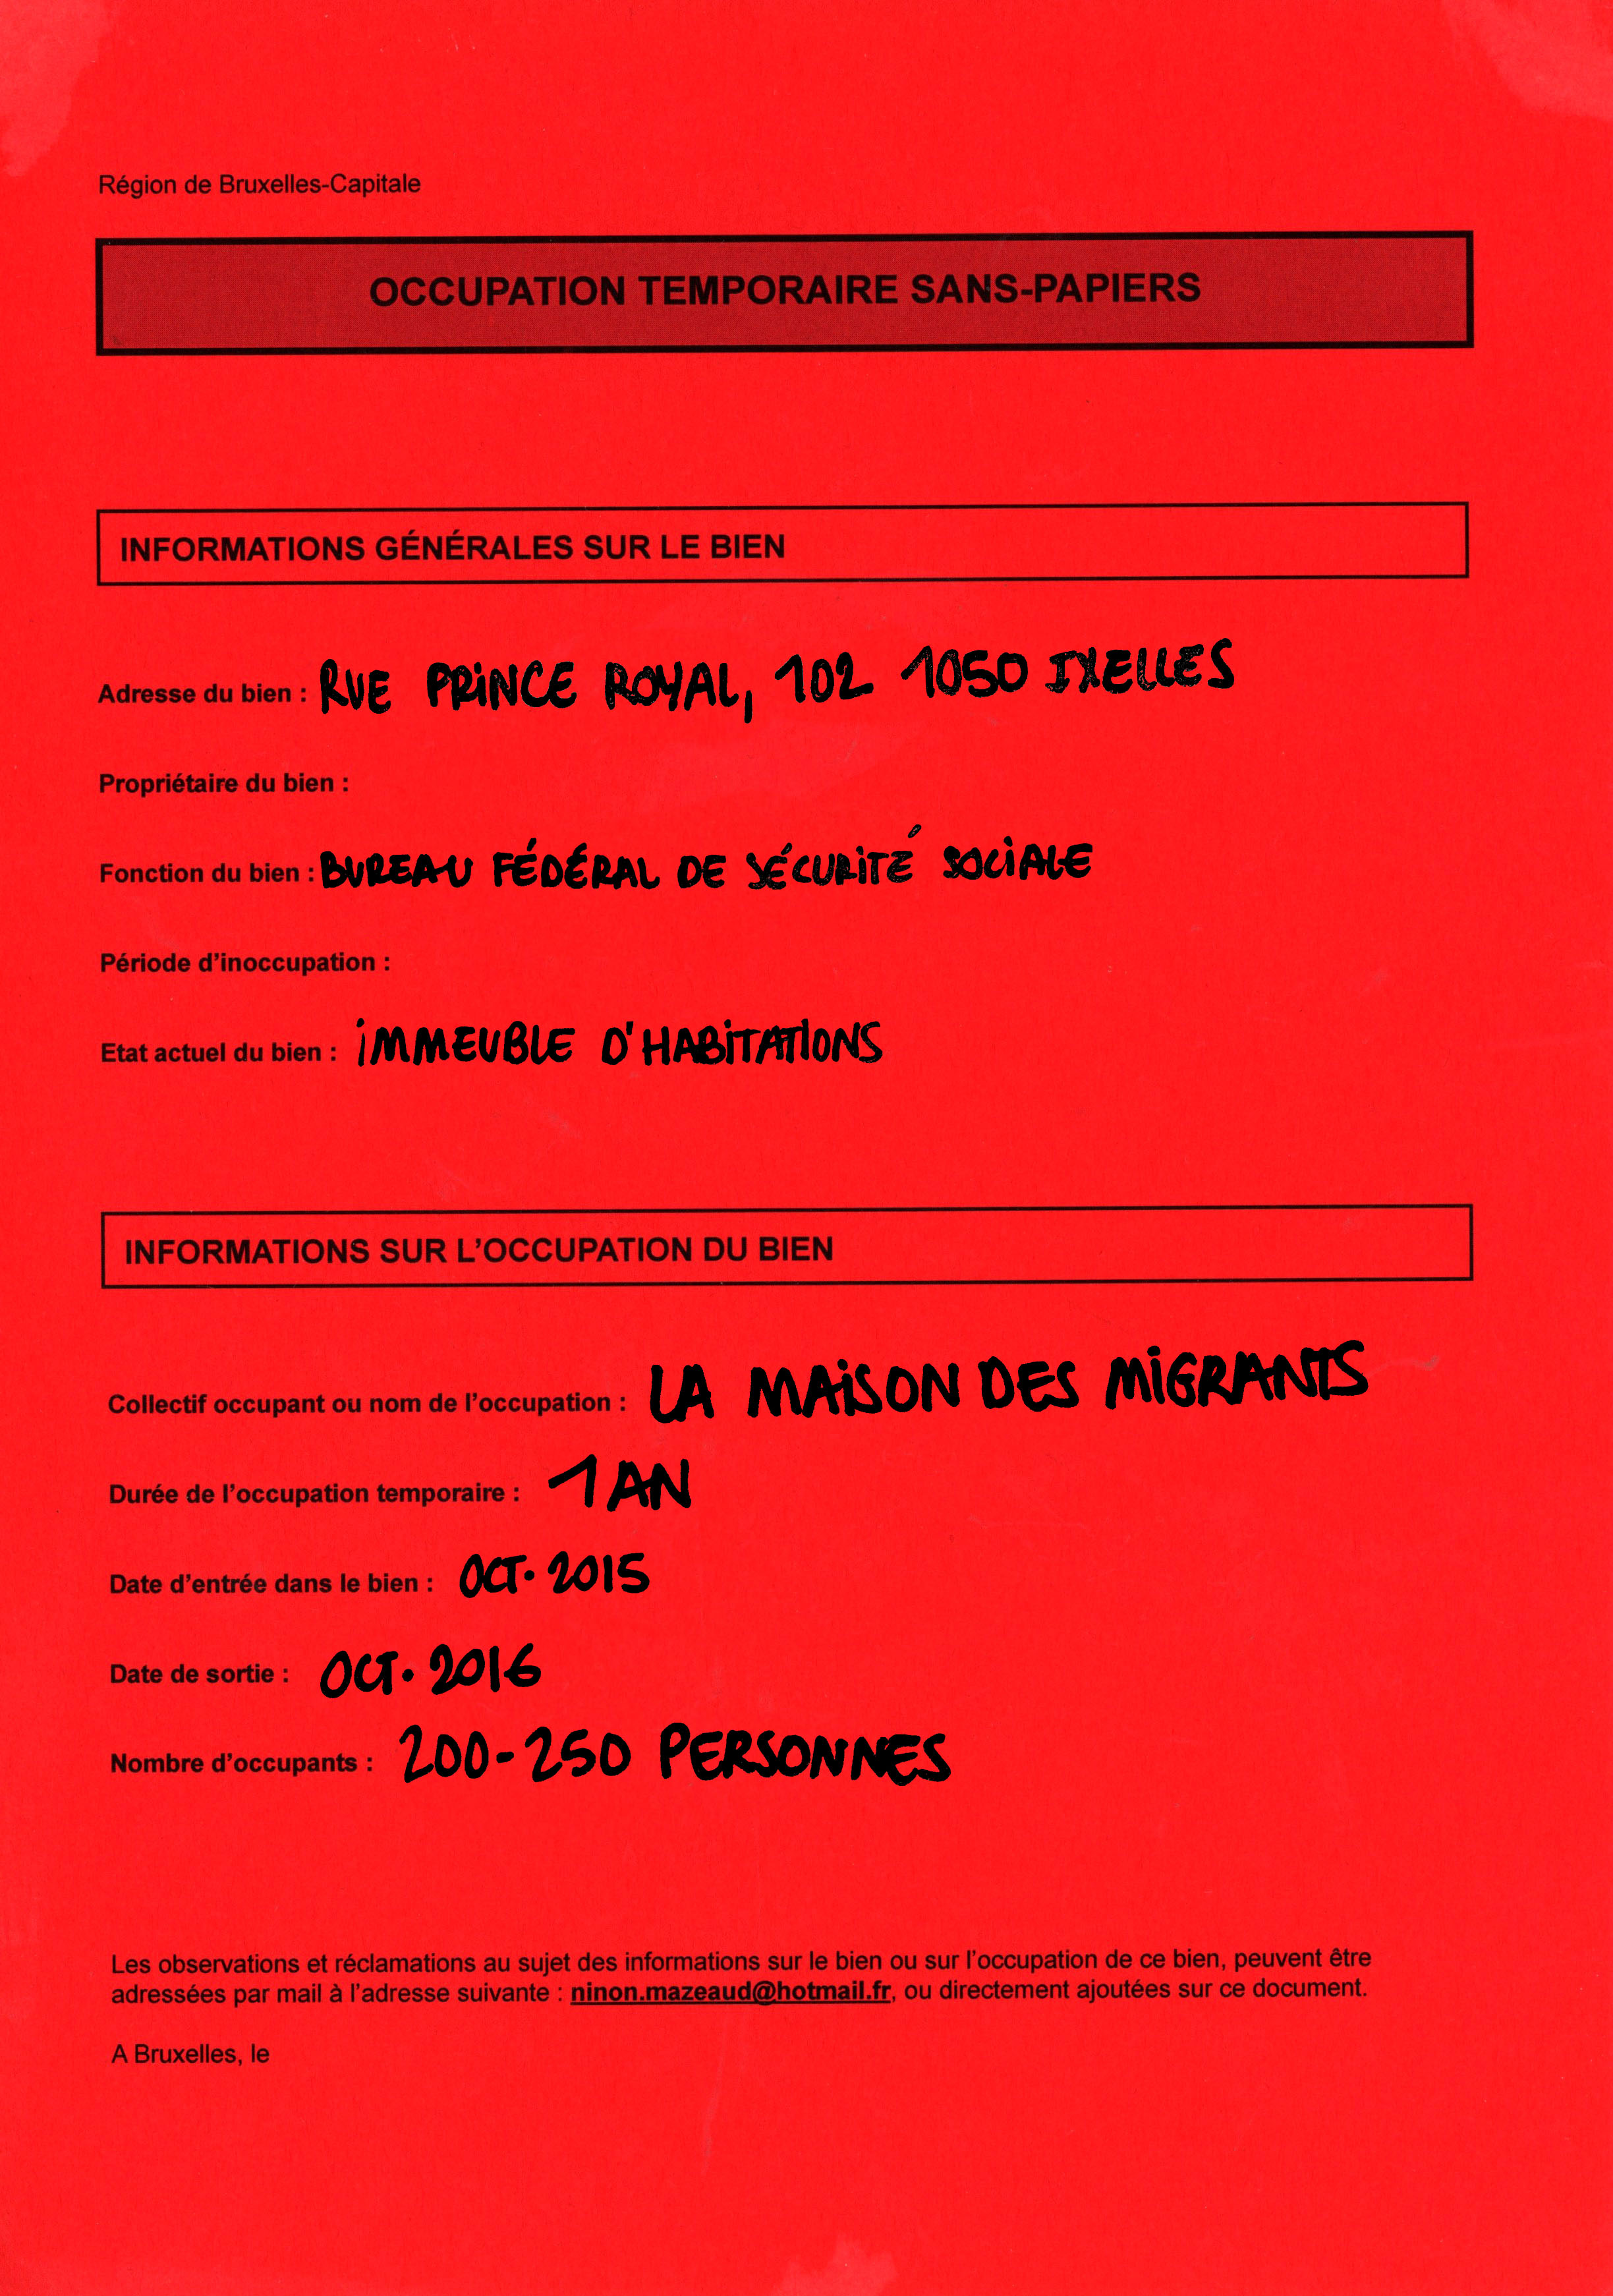 Région de Bruxelles-Capitale
OCCUPATION TEMPORAIRE SANS-PAPIERS
INFORMATIONS GÉNÉRALES SUR LE BIEN
Adresse du bien : RUE PRINCE ROYAL, 102 1050 IXELLES
Propriétaire du bien :
Fonction du bien : BUREAU FÉDÉRAL DE SÉCURITÉ SOCIALE
Période d’inoccupation :
Etat actuel du bien : IMMEUBLE D'HABITATIONS
INFORMATIONS SUR L’OCCUPATION DU BIEN
Collectif occupant ou nom de l’occupation : LA MAISON DES MIGRANTS
Durée de l’occupation temporaire : 1 AN
Date d’entrée dans le bien : OCT. 2015
Date de sortie : OCT. 2016
Nombre d’occupants : 200-250 PERSONNES
Les observations et réclamations au sujet des informations sur le bien ou sur l’occupation de ce bien, peuvent être
adressées par mail à l’adresse suivante : ninon.mazeaud@hotmail.fr, ou directement ajoutées sur ce document.
A Bruxelles, le